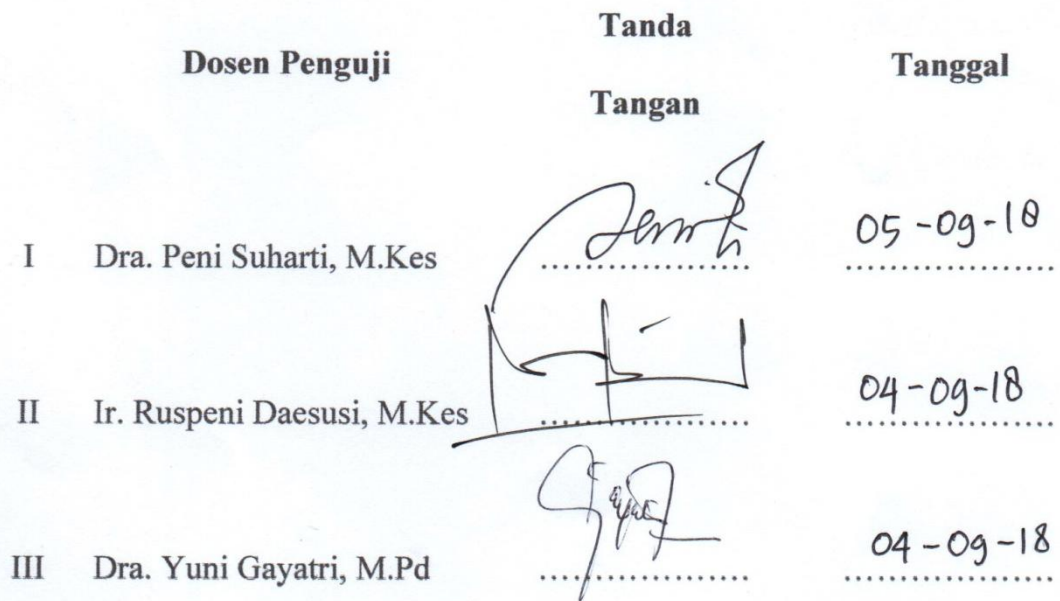 Dosen Penguji Tanda Tangan Tanggal
I Dra. Peni Suharti, M.Kes 05-09-18
II Ir. Ruspeni Daesusi, M.Kes 04-09-18
III Dra. Yuni Gayatri, M.Pd 04-09-18